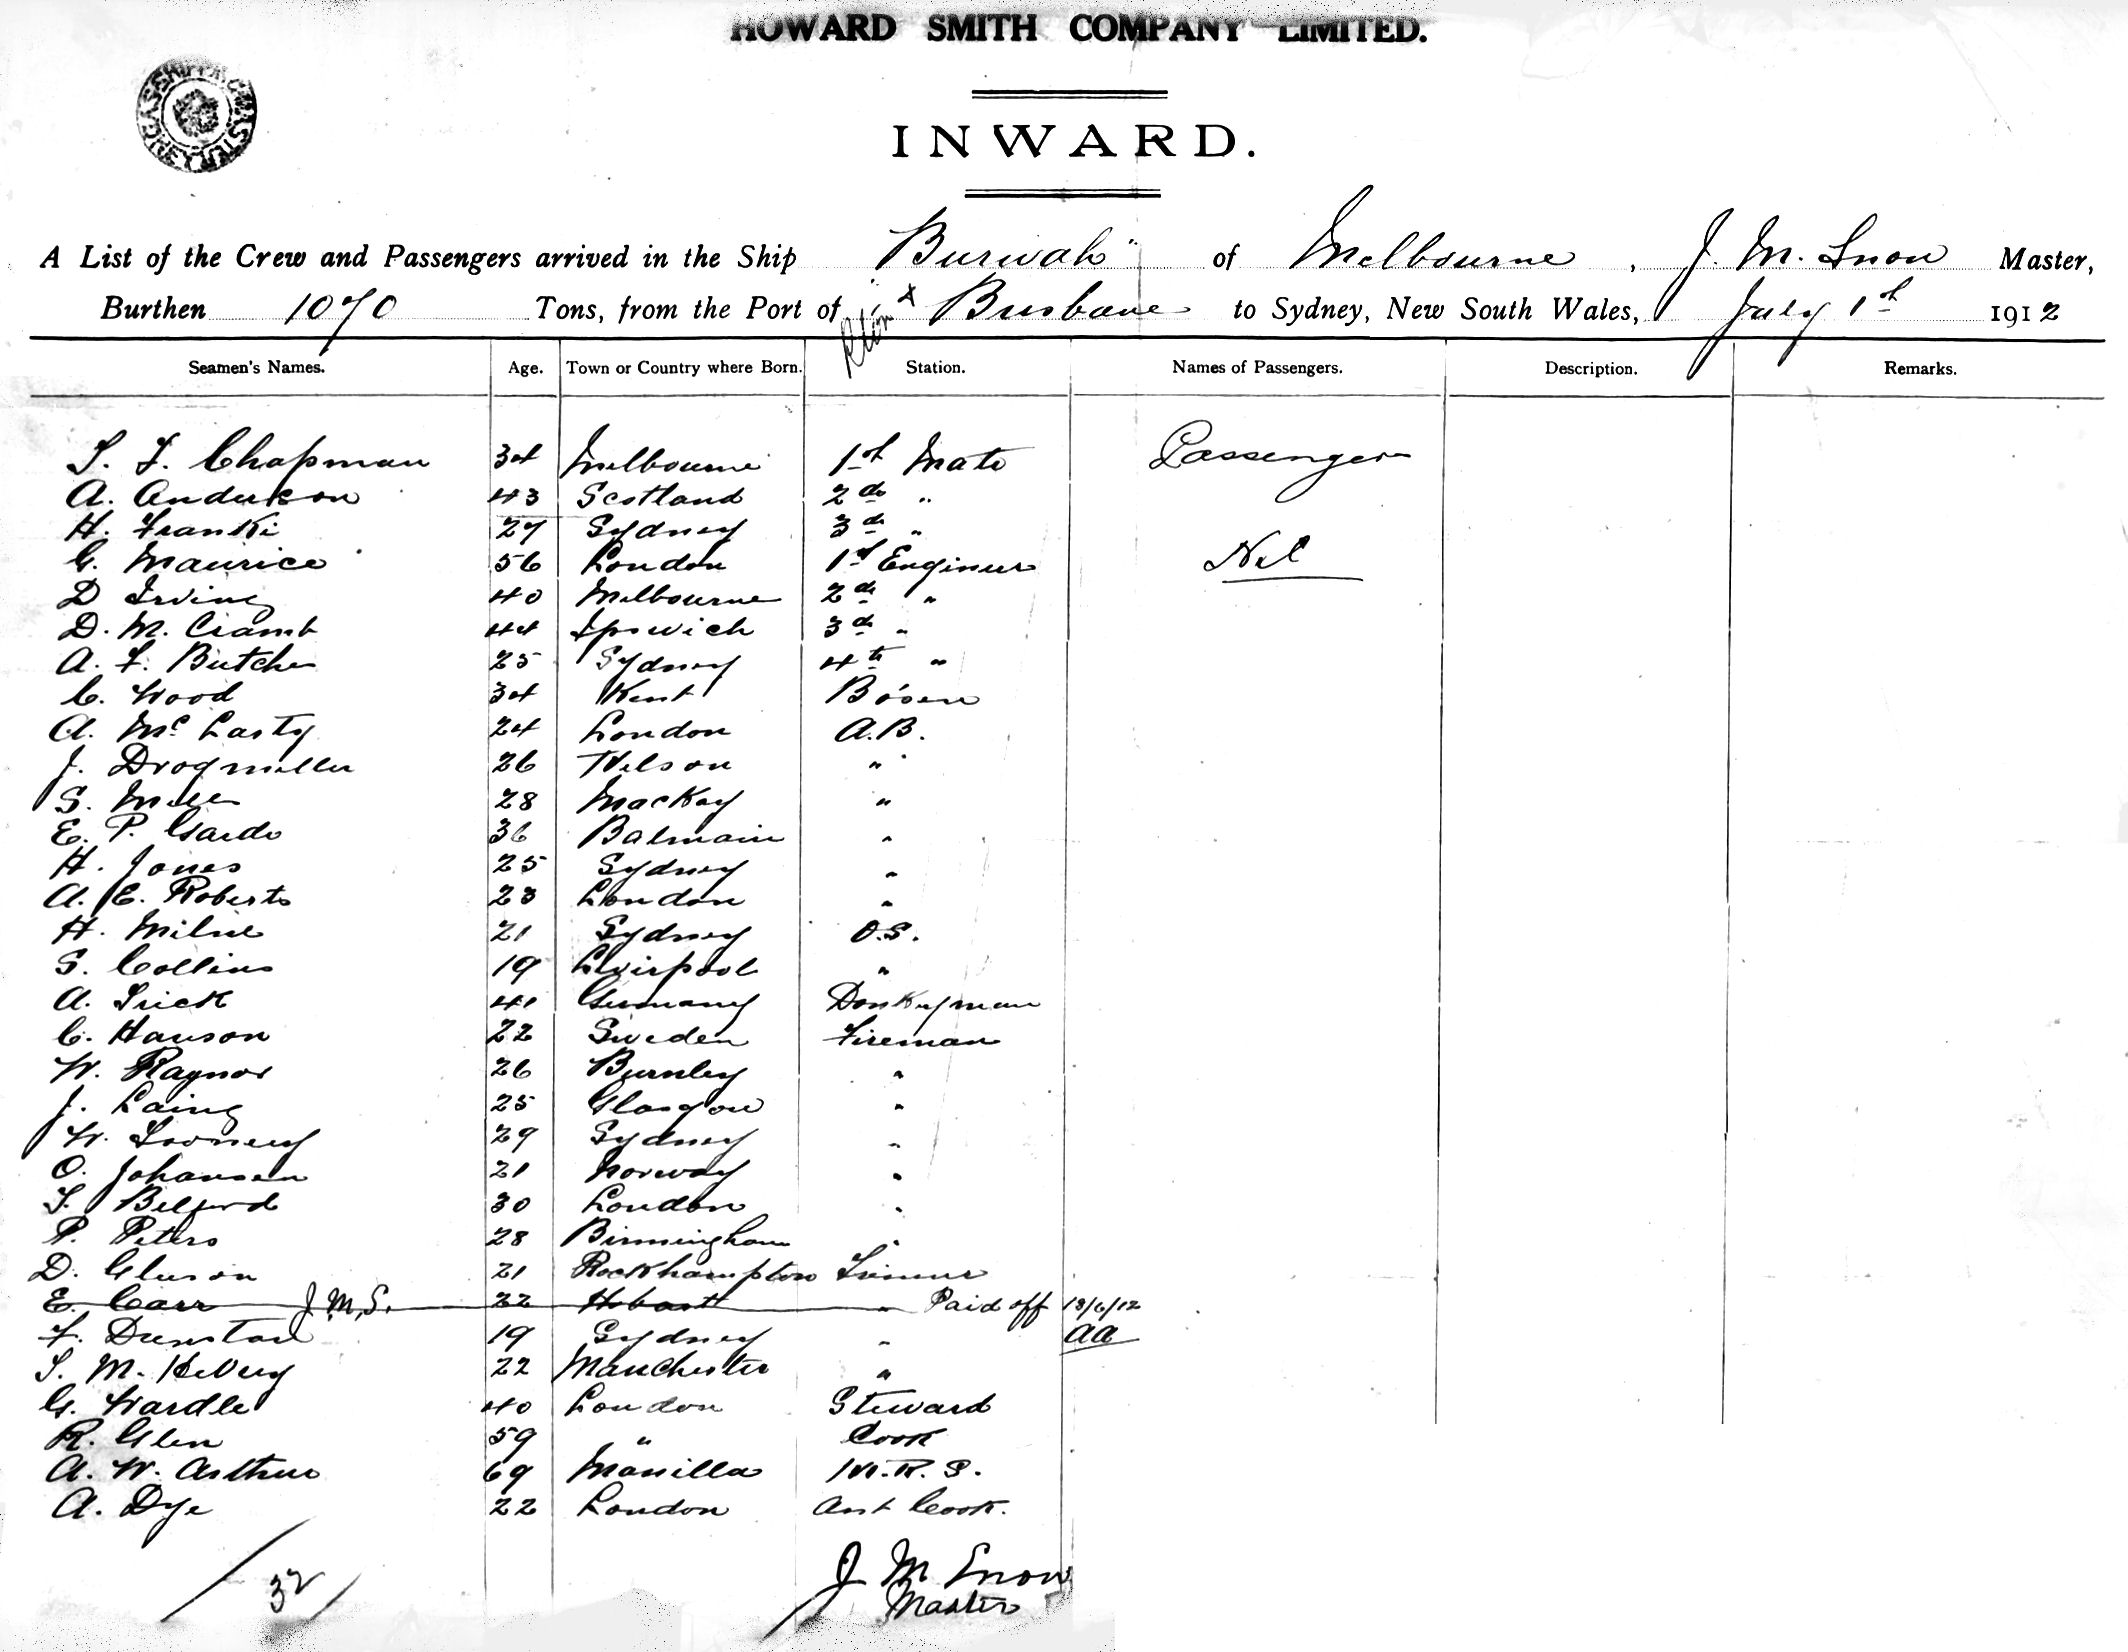 HOWARD SMITH COMPANY LIMITED.
INWARD.
A List of the Crew and Passengers arrived in the Ship "Burwah" of Melbourne, J. M. Snow Master,
Burthen 1070 Tons, from the Port of Brisbane to Sydney, New South Wales, July 1st 1912
Seamen's Names. Age. Town or Country where Born. Station. Names of Passengers. Description. Remarks.
S. F. Chapman 34 Melbourne 1st Mate Passengers
A. Anderson 43 Scotland 2nd "
H. Franki 27 Sydney 3rd "
G. Maurice 56 London 1st Engineer Nil
D Irving 40 Melbourne 2nd "
D. M. Cramb 44 Ipswich 3rd "
A. F. Butcher 25 Sydney 4th "
C. Wood 34 Kent Bosen
A. McCarty 24 London A.B.
J. Drogmiller 26 Nelson "
S. Mills 28 MacKay "
E. P. Garde 36 Balmain "
H. Jones 25 Sydney "
A. E. Roberts 23 London "
H. Milne 21 Sydney O.S.
S. Collins 19 Liverpool "
A. 41 Germany Donkeyman
C. Hanson 22 Sweden Fireman
W. Raynor 26 Burnley "
J. Laing 25 Glasgow "
W. 29 Sydney "
O. Johansen 21 Norway "
S. Belford 30 London "
P. Peters 28 Birmingham "
D. Gleeson 21 Rockhampton Trimmer
E. Carr J.M.S. 22 Hobart " Paid off 18/6/12
F. Dunstan 19 Sydney " AA
22 Manchester "
G. Wardle 40 London Steward
R. Glen 59 " Cook
A. W. Arthur 69 Manilla M.R.S.
A. Dye 22 London Asst Cook.
32
J M Snow
Master